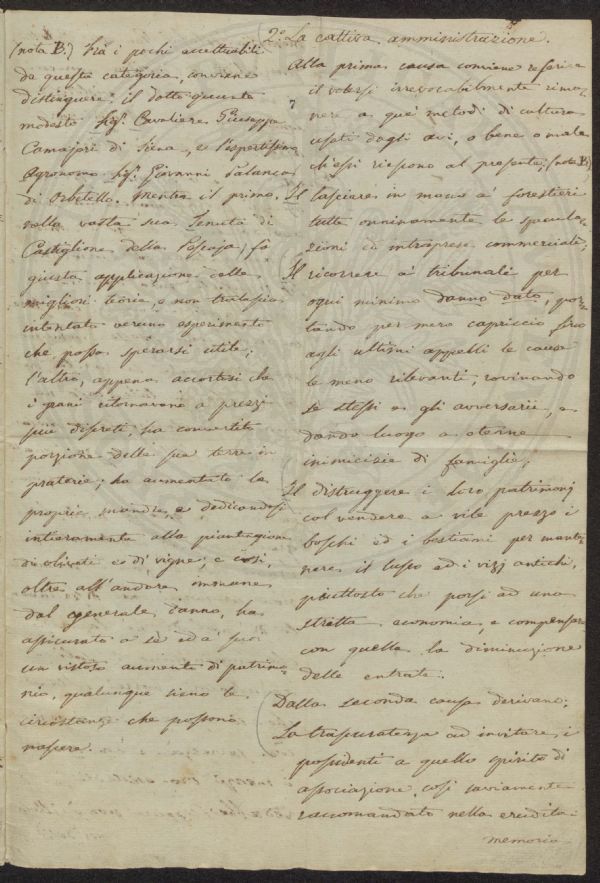 2.° La cattiva amministrazione.
Alla prima causa conviene referire
il volersi irrevocabilmente rima-
nere a que' metodi di cultura
usati dagli avi, o bene o male
ch'essi riescono al presente; (nota B.)
Il lasciare in mano a' forestieri
tutte onninamente le specula-
zioni ed intraprese commerciali;
Il ricorrere a' tribunali per
ogni minimo danno dato, por-
tando per mero capriccio fino
agli ultimi appelli le cause
le meno rilevanti, rovinando
se stessi e gli avversarii, e
dando luogo a eterne
inimicizie di famiglie;
Il distruggere i loro patrimonj
col vendere a vile prezzo i
boschi ed i bestiami per mante-
nere il lusso ed i vizj antichi,
piuttosto che porsi ad una
stretta economia, e compensare
con quella la diminuzione
delle entrate.
Dalla seconda causa derivano;
La trascuratezza ad invitare i
possidenti a quello spirito di
associazione così saviamente
raccomandato nella erudita
memoria
(nota B.) Fra i pochi accettuabili
da questa categoria, conviene
distinguere il dotto quanto
modesto Sig.r Cavaliere Giuseppe
Camajori di Siena, e l'espertissimo
Agronomo Sig.r Giovanni Salanca
di Orbetello. Mentre il primo
nella vasta sua Tenuta di
Castiglione della Pescaja, fa
giusta applicazione delle
migliori teorie, e non tralascia
intentato veruno esperimento
che possa sperarsi utile;
l'altro, appena accortosi che
i grani ritornavano a prezzi
più discreti, ha convertito
porzione delle sue terre in
praterie; ha aumentato la
propria mandra, e dedicandosi
intieramente alla piantagione
di oliveti e di vigne; e così,
oltre all'andare immune
dal generale danno, ha
assicurato a se ed a' suoi
un vistoso aumento di patrimo-
nio, qualunque sieno le
circostanze che possono
nascere.